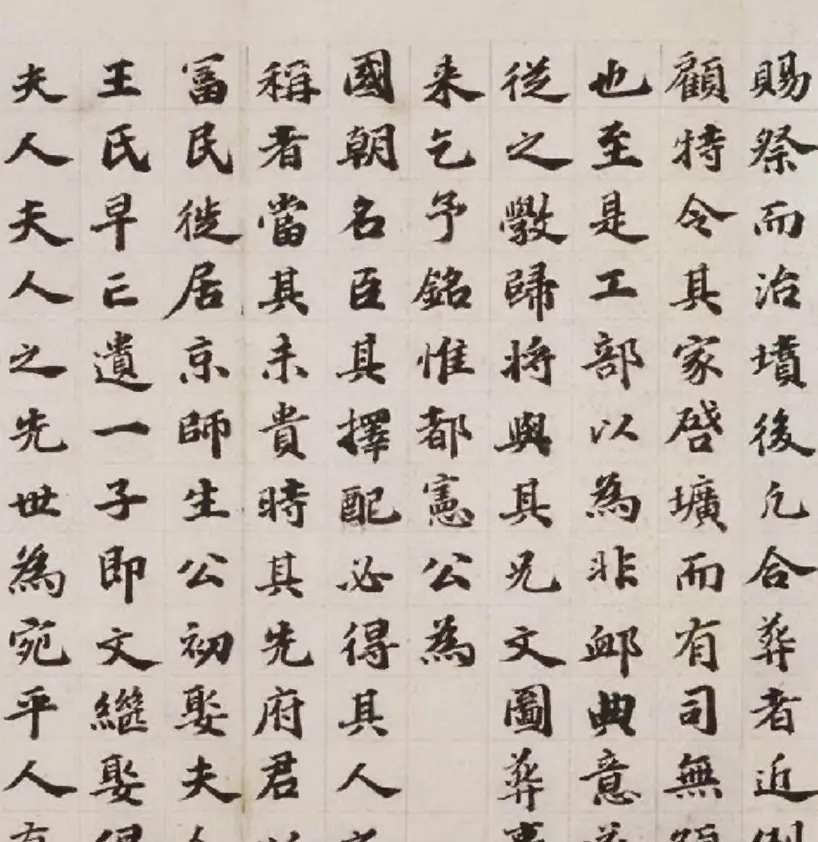 賜祭而治墳後凡合葬者近例
顧特令其家啓壙而有司無
也至是工部以為非卹典意
從之斆歸將與其兄文圖葬事
来乞予銘惟都憲公為
國朝名臣其擇配必得其人
稱者當其未貴時其先府君以
冨民徙居京師生公初娶夫人
王氏早亡遺一子即文繼娶
夫人夫人之先世為宛平人有